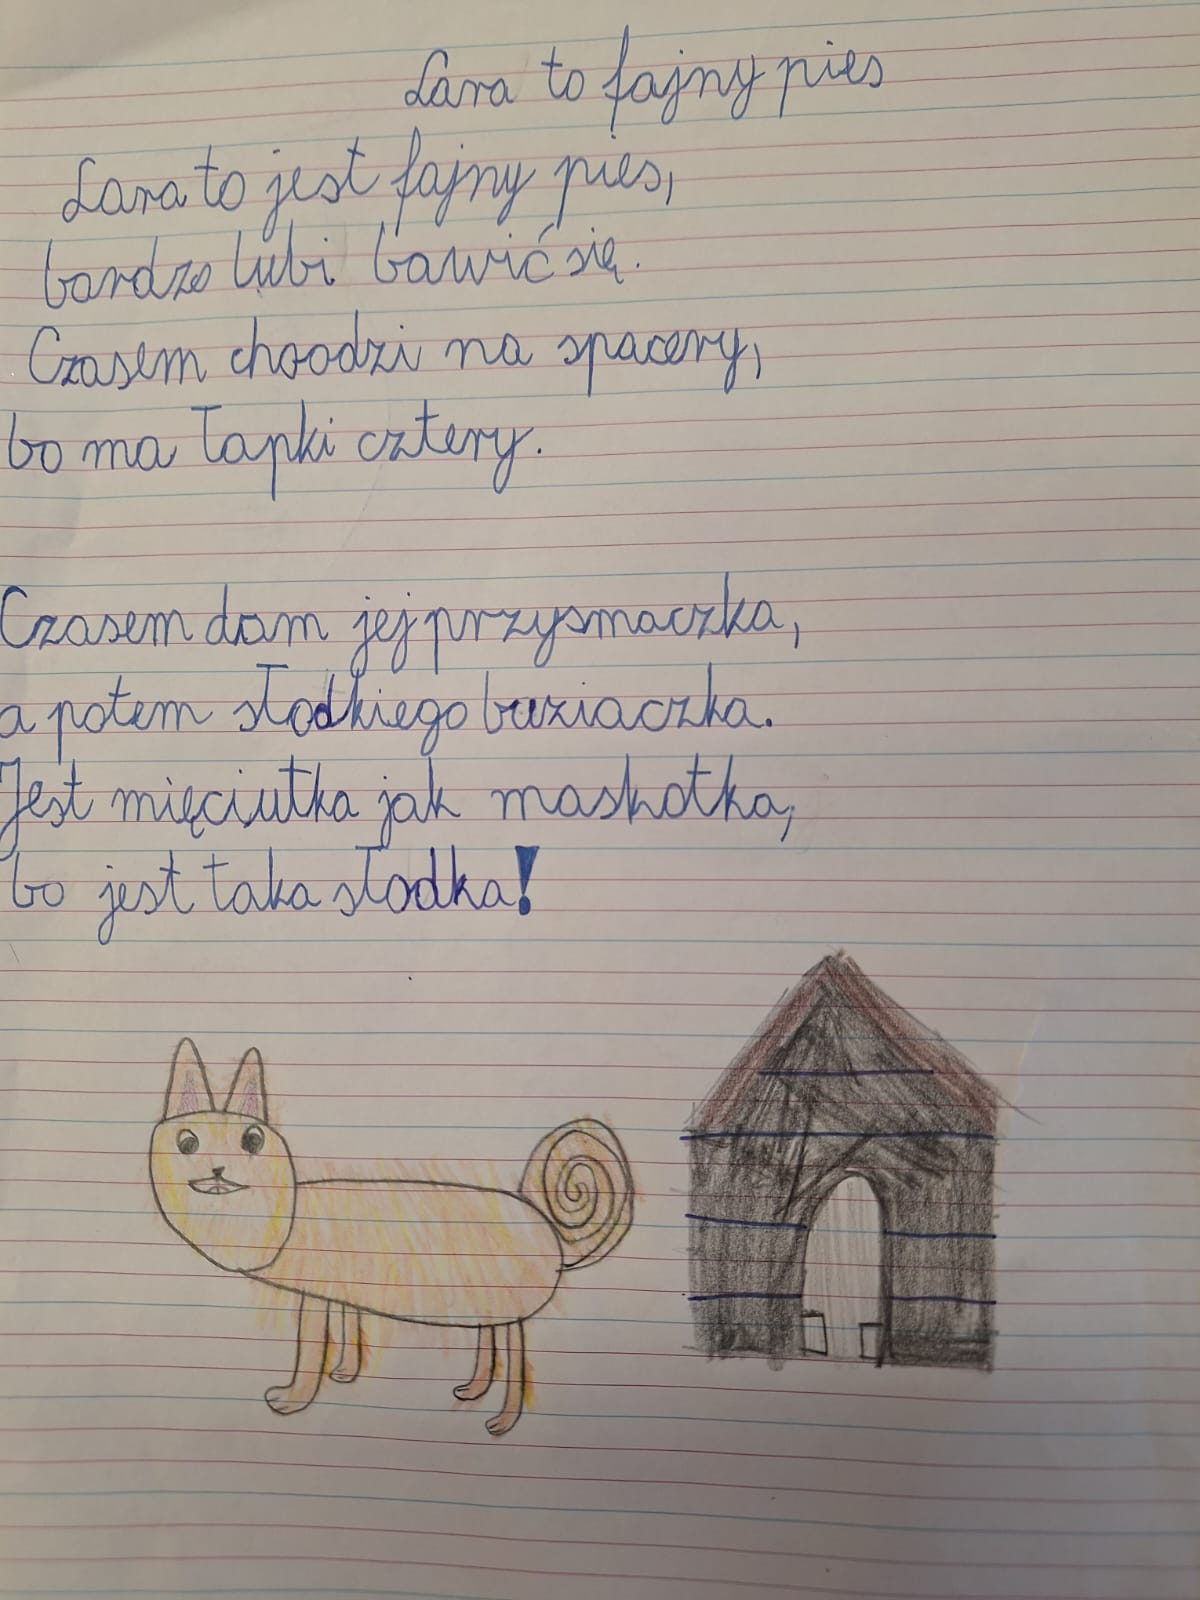 Lara to fajny pies
Lara to jest fajny pies,
bardzo lubi bawić się.
Czasem choodzi na spacery,
bo ma łapki cztery.
Czasem dam jej przysmaczka,
a potem słodkiego buziaczka.
Jest mięciutka jak maskotka,
bo jest taka słodka!